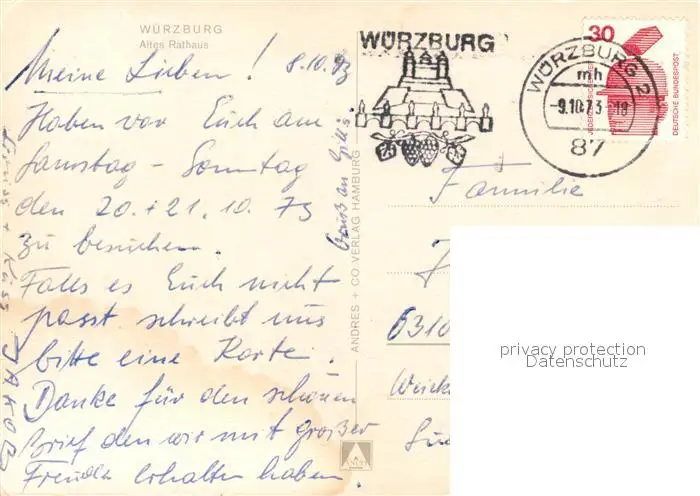 WÜRZBURG
Altes Rathaus
Meine Lieben! 8.10.73
Haben vor Euch am
Samstag - Sonntag
den 20. + 21. 10. 73
zu besuchen.
Falls es Euch nicht
passt schreibt uns
bitte eine Karte.
Danke für den schönen
Brief den wir mit großer
Freude erhalten haben
Gruss + Kuss JAKOB
Gruß an
ANDRES + CO. VERLAG HAMBURG
WÜRZBURG
WÜRZBURG 2
mh
-9.10.73-18
87
30
JEDERZEIT SICHERHEIT
DEUTSCHE BUNDESPOST
Familie
6310
privacy protection
Datenschutz